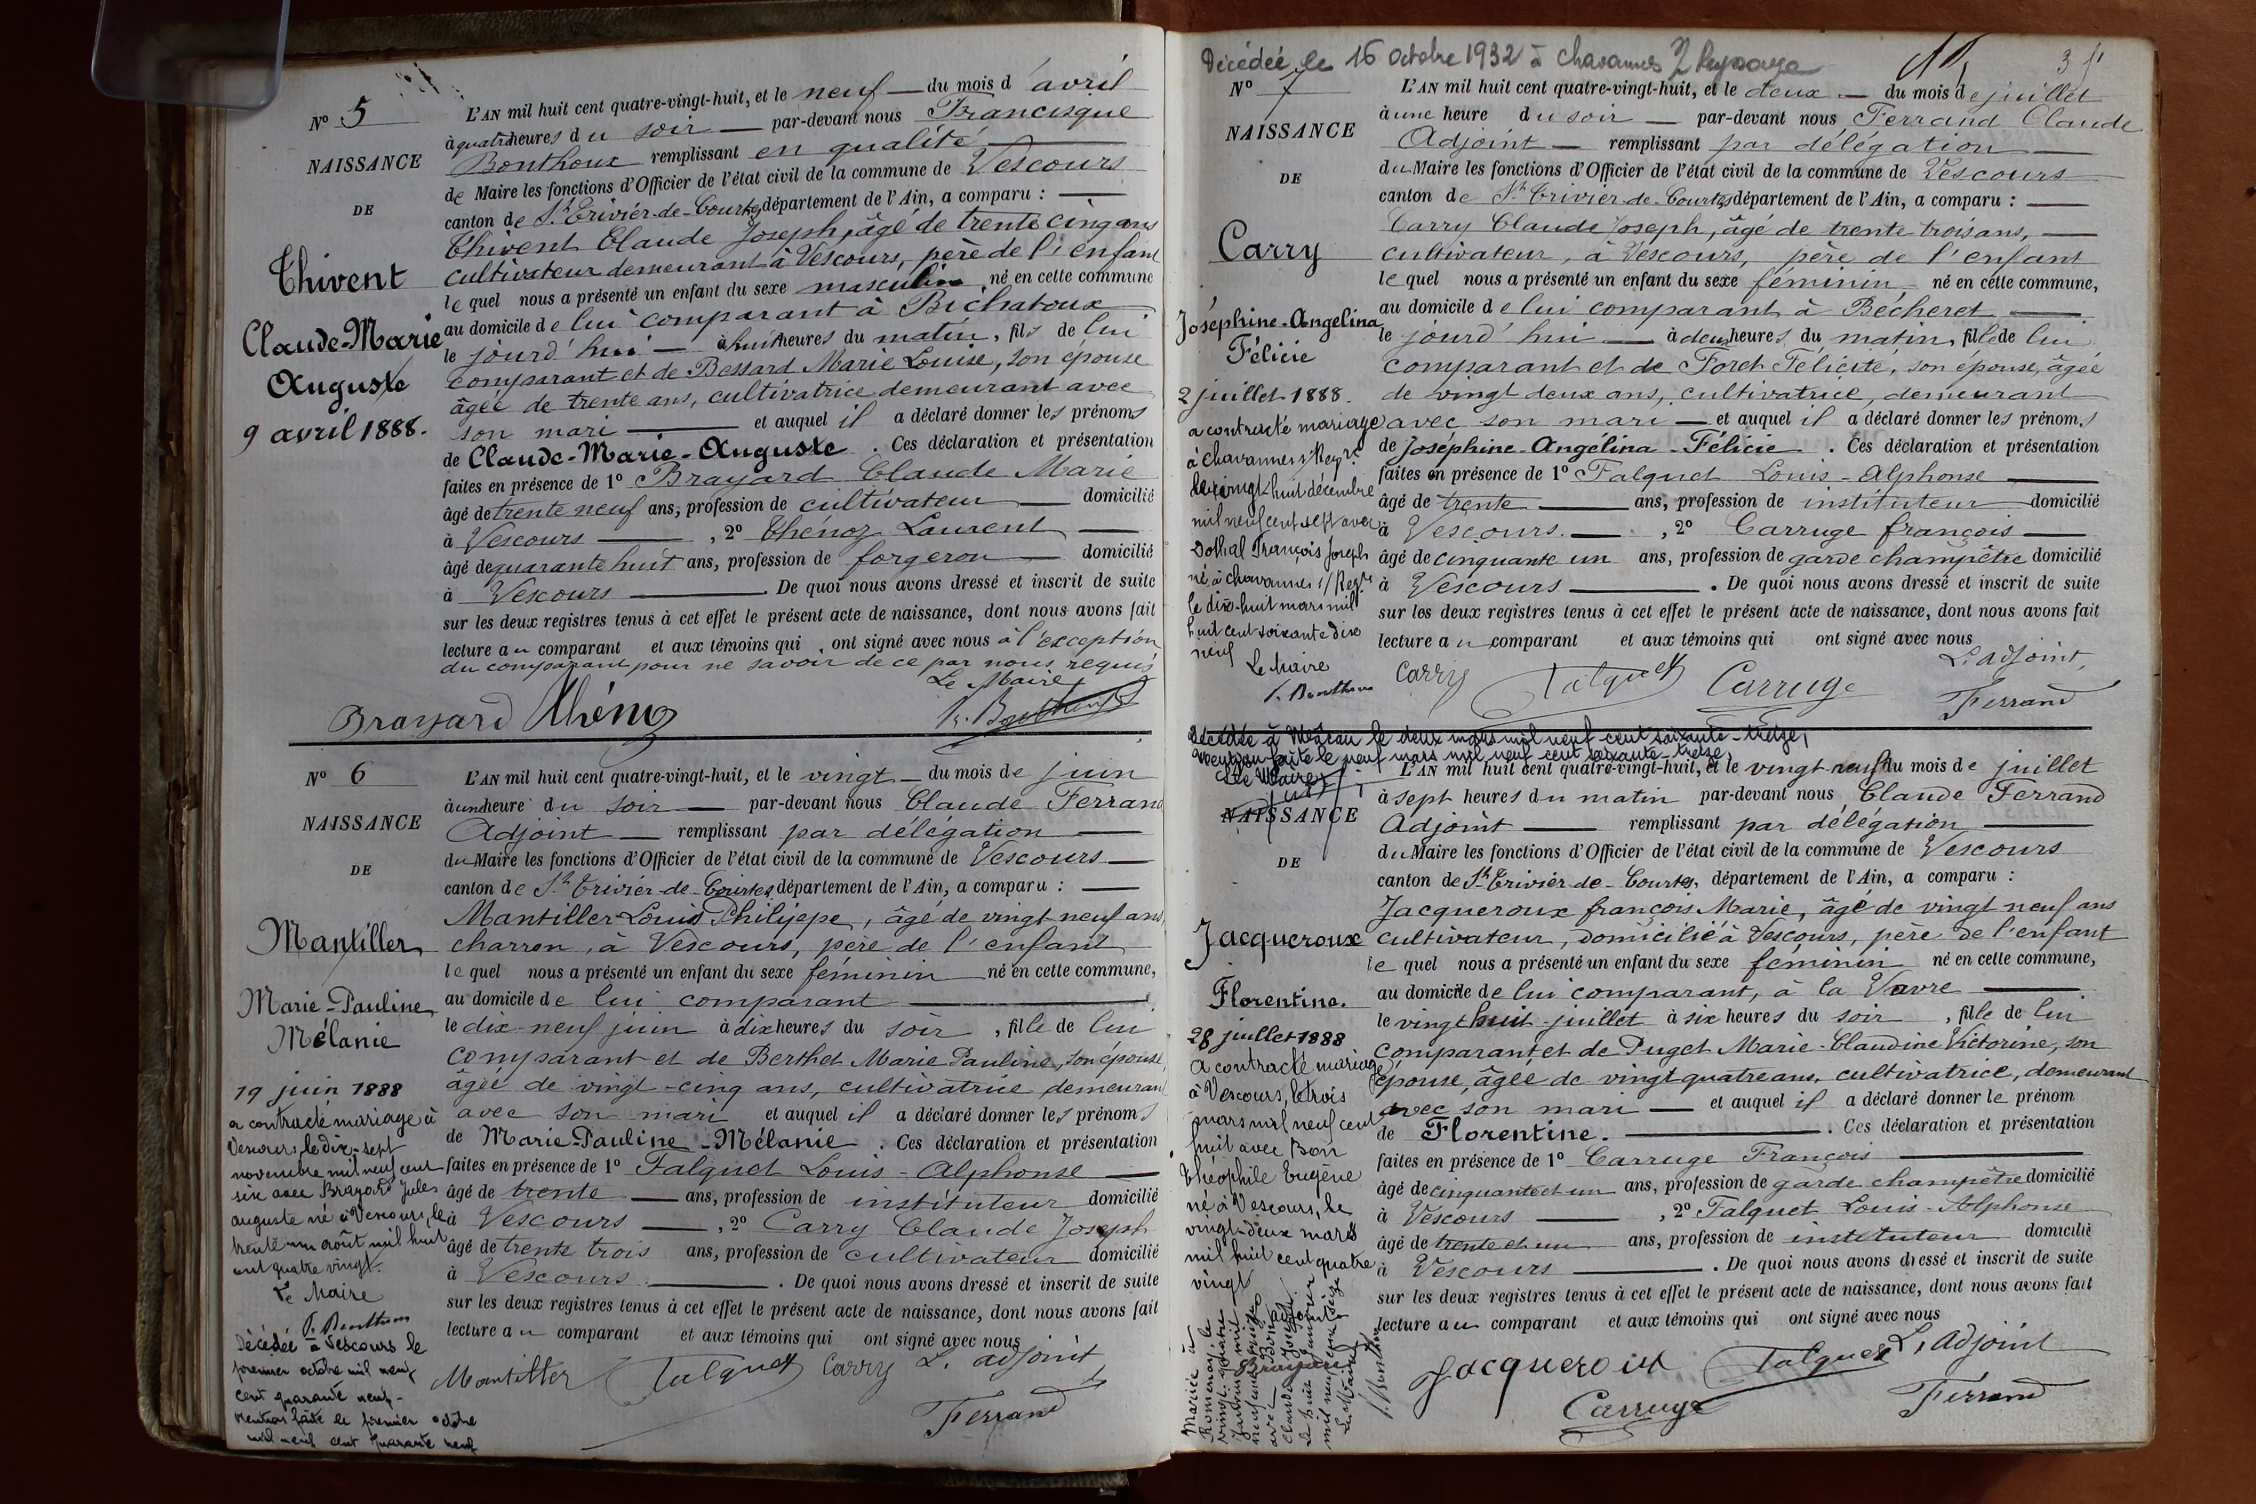 N° 5
NAISSANCE
DE
Thivent
Claude-Marie
Auguste
9 avril 1888.
L'AN mil huit cent quatre-vingt-huit, et le neuf — du mois d'avril
à quatre heures du soir — par-devant nous Francisque
Bonthoux remplissant en qualité —
de Maire les fonctions d'Officier de l'état civil de la commune de Vescours
canton de St Trivier-de-Courtes, département de l'Ain, a comparu : —
Thivent Claude Joseph, âgé de trente cinq ans
cultivateur demeurant à Vescours, père de l'enfant
lequel nous a présenté un enfant du sexe masculin, né en cette commune
au domicile de lui comparant à Bichatoux
le jourd'hui — à huit heures du matin, fils de lui
comparant et de Bessard Marie Louise, son épouse
âgée de trente ans, cultivatrice demeurant avec
son mari — et auquel il a déclaré donner les prénoms
de Claude-Marie-Auguste. Ces déclaration et présentation
faites en présence de 1° Brayard Claude Marie
âgé de trente neuf ans, profession de cultivateur — domicilié
à Vescours —, 2° Thénoz Laurent —
âgé de quarante huit ans, profession de forgeron — domicilié
à Vescours —. De quoi nous avons dressé et inscrit de suite
sur les deux registres tenus à cet effet le présent acte de naissance, dont nous avons fait
lecture au comparant et aux témoins qui ont signé avec nous à l'exception
du comparant pour ne savoir de ce par nous requis
Le Maire
Brayard Thénoz F. Bonthoux
N° 6
NAISSANCE
DE
Mantiller
Marie-Pauline
Mélanie
19 juin 1888
a contracté mariage à
Vescours, le dix-sept
novembre mil neuf cent
six avec Brayard Jules
auguste né à Vescours, le
trente-un août mil huit
cent quatre vingt.
Le Maire
F. Bonthoux
Décédée à Vescours le
premier octobre mil neuf
cent quarante neuf -
Mention faite le premier octobre
mil neuf cent quarante neuf
L'AN mil huit cent quatre-vingt-huit, et le vingt — du mois de juin
à une heure du soir — par-devant nous Claude Ferrand
Adjoint — remplissant par délégation —
du Maire les fonctions d'Officier de l'état civil de la commune de Vescours —
canton de St Trivier-de-Courtes, département de l'Ain, a comparu : —
Mantiller Louis Philippe, âgé de vingt neuf ans,
charron, à Vescours, père de l'enfant
lequel nous a présenté un enfant du sexe féminin né en cette commune,
au domicile de lui comparant —
le dix-neuf juin à dix heures du soir, fille de lui
comparant et de Berthet Marie Pauline, son épouse,
âgée de vingt-cinq ans, cultivatrice demeurant
avec son mari et auquel il a déclaré donner les prénoms
de Marie-Pauline-Mélanie. Ces déclaration et présentation
faites en présence de 1° Falquet Louis-Alphonse —
âgé de trente — ans, profession de instituteur domicilié
à Vescours —, 2° Carry Claude Joseph
âgé de trente trois ans, profession de cultivateur domicilié
à Vescours —. De quoi nous avons dressé et inscrit de suite
sur les deux registres tenus à cet effet le présent acte de naissance, dont nous avons fait
lecture au comparant et aux témoins qui ont signé avec nous
Mantiller Falquet Carry L'adjoint
Ferrand
Décédée le 16 octobre 1932 à Chavannes s/ Reyssouze
N° 7
NAISSANCE
DE
Carry
Joséphine-Angélina
Félicie
2 juillet 1888.
a contracté mariage
à Chavannes s/Reyze
le vingt-huit décembre
mil neuf cent sept avec
Dothal François Joseph
né à Chavannes s/Reyze
le dix-huit mars mil
huit cent soixante dix
neuf
Le Maire
F. Bonthoux
L'AN mil huit cent quatre-vingt-huit, et le deux — du mois de juillet
à une heure du soir — par-devant nous Ferrand Claude
Adjoint — remplissant par délégation —
du Maire les fonctions d'Officier de l'état civil de la commune de Vescours
canton de St Trivier-de-Courtes, département de l'Ain, a comparu : —
Carry Claude Joseph, âgé de trente trois ans, —
cultivateur, à Vescours, père de l'enfant
lequel nous a présenté un enfant du sexe féminin né en cette commune,
au domicile de lui comparant à Bécheret —
le jourd'hui — à deux heures du matin, fille de lui
comparant et de Foret Félicité, son épouse, âgée
de vingt deux ans, cultivatrice, demeurant
avec son mari — et auquel il a déclaré donner les prénoms
de Joséphine-Angélina-Félicie. Ces déclaration et présentation
faites en présence de 1° Falquet Louis-Alphonse —
âgé de trente — ans, profession de instituteur domicilié
à Vescours —, 2° Carruge françois —
âgé de cinquante un ans, profession de garde champêtre domicilié
à Vescours —. De quoi nous avons dressé et inscrit de suite
sur les deux registres tenus à cet effet le présent acte de naissance, dont nous avons fait
lecture au comparant et aux témoins qui ont signé avec nous
L'adjoint,
Carry Falquet Carruge
Ferrand
Décédée à Mézeau le deux mars mil neuf cent soixante-treize,
Mention faite le neuf mars mil neuf cent soixante-treize,
Le Maire,
NAISSANCE
DE
Jacqueroux
Florentine.
28 juillet 1888
a contracté mariage
à Vescours, le trois
mars mil neuf cent
huit avec Bon
Théophile Eugène
né à Vescours, le
vingt-deux mars
mil huit cent quatre
vingt
Mariée à
Romenay, le
vingt-quatre
Le Maire
F. Bonthoux
L'AN mil huit cent quatre-vingt-huit, et le vingt neuf du mois de juillet
à sept heures du matin par-devant nous Claude Ferrand
Adjoint — remplissant par délégation —
du Maire les fonctions d'Officier de l'état civil de la commune de Vescours
canton de St Trivier-de-Courtes, département de l'Ain, a comparu :
Jacqueroux françois Marie, âgé de vingt neuf ans
cultivateur, domicilié à Vescours, père de l'enfant
lequel nous a présenté un enfant du sexe féminin né en cette commune,
au domicile de lui comparant, à la Vavre —
le vingt huit juillet à six heures du soir, fille de lui
comparant et de Puget Marie-Claudine Victorine, son
épouse, âgée de vingt quatre ans, cultivatrice, demeurant
avec son mari — et auquel il a déclaré donner le prénom
de Florentine. —. Ces déclaration et présentation
faites en présence de 1° Carruge François —
âgé de cinquante et un ans, profession de garde champêtre domicilié
à Vescours —, 2° Falquet Louis-Alphonse
âgé de trente et un ans, profession de instituteur domicilié
à Vescours —. De quoi nous avons dressé et inscrit de suite
sur les deux registres tenus à cet effet le présent acte de naissance, dont nous avons fait
lecture au comparant et aux témoins qui ont signé avec nous
Jacqueroux Falquet L'adjoint
Carruge Ferrand